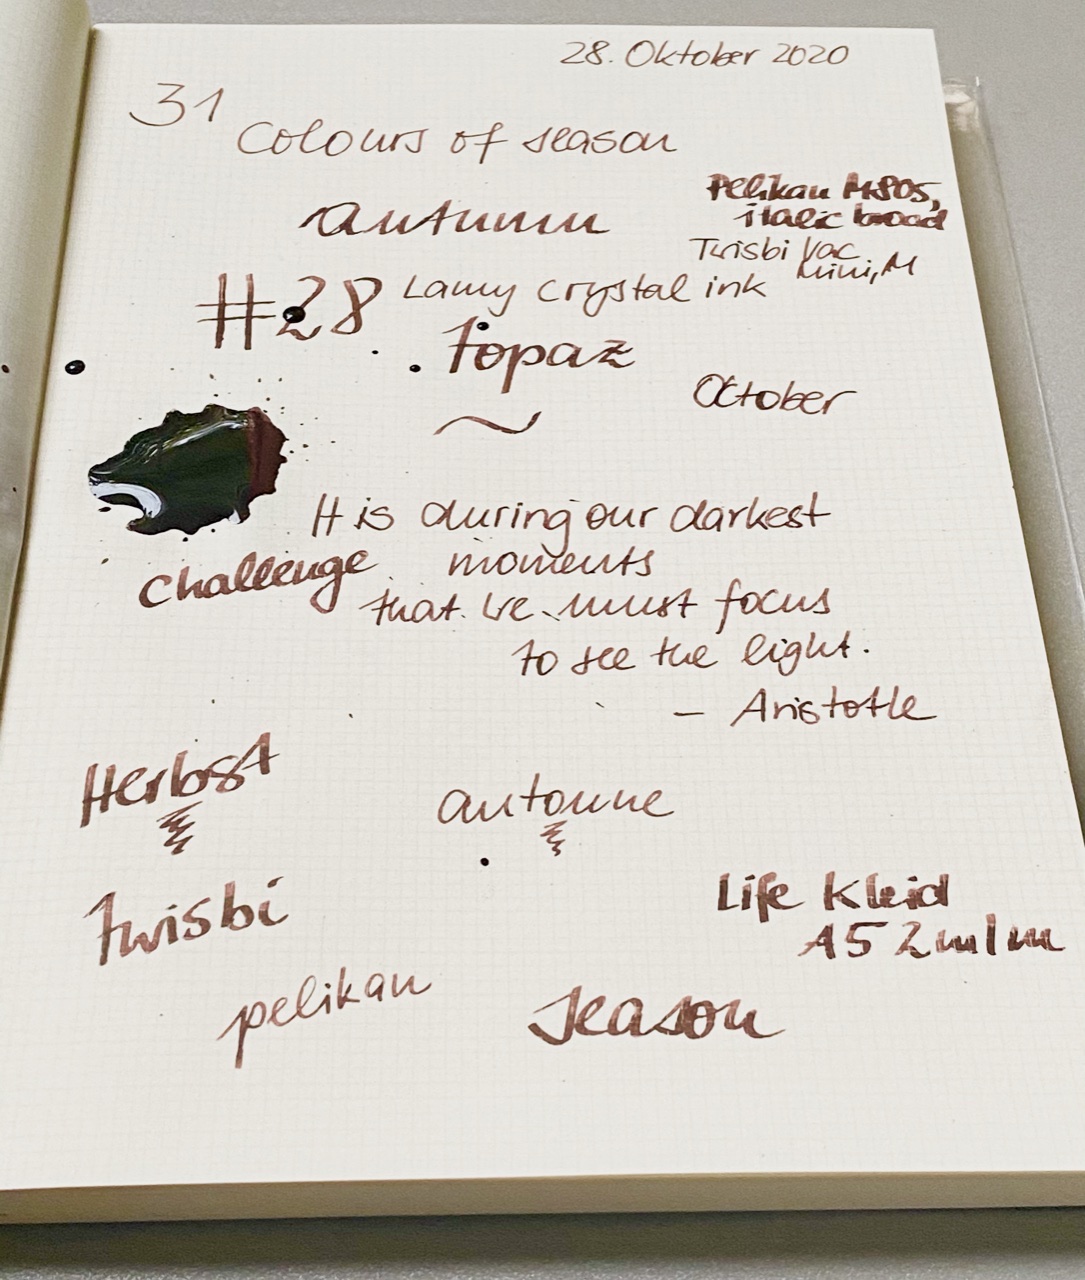 28. Oktober 2020
31
Colours of season
autumn
Pelikan M805,
italic broad
Twisbi Vac
Mini, M
#28 Lamy crystal ink
topaz
October
~
It is during our darkest
challenge moments
that we must focus
to see the light.
– Aristotle
Herbst
automne
Twisbi
Life Kleid
A5 2m/m
pelikan
season